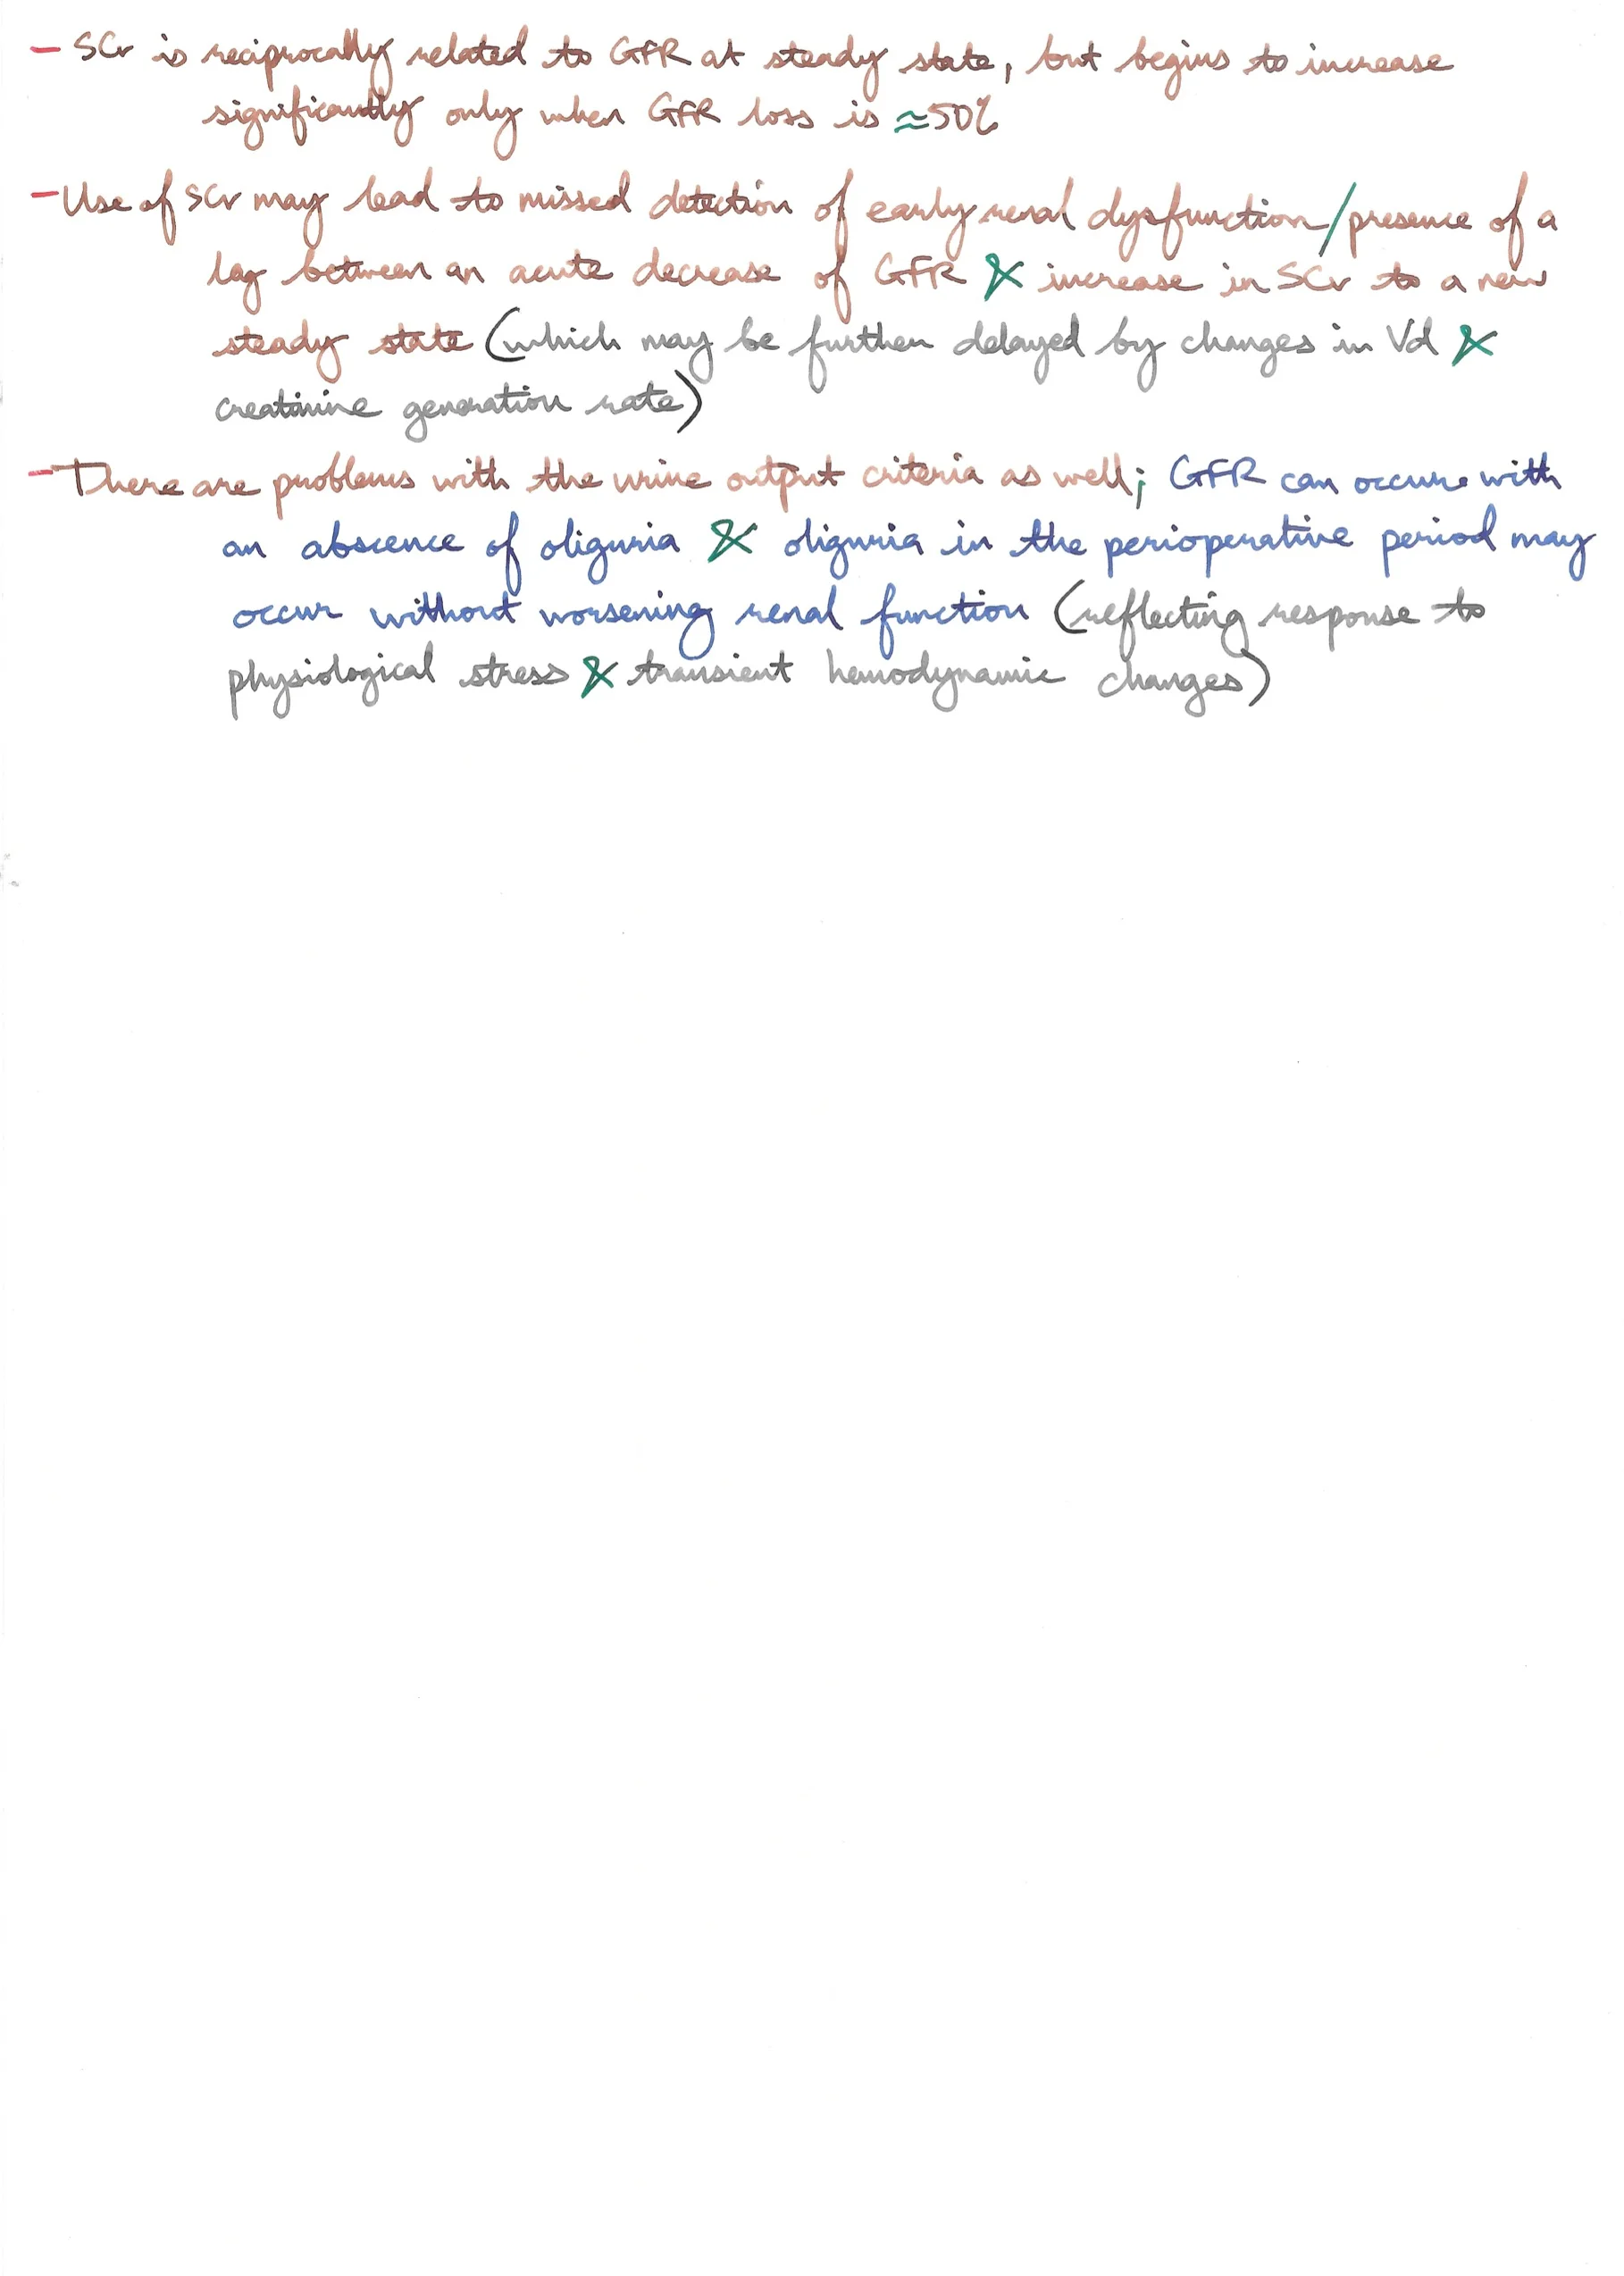 - SCr is reciprocally related to GFR at steady state, but begins to increase
significantly only when GFR loss is ≈50%
- Use of SCr may lead to missed detection of early renal dysfunction/presence of a
lag between an acute decrease of GFR & increase in SCr to a new
steady state (which may be further delayed by changes in Vd &
creatinine generation rate)
- There are problems with the urine output criteria as well; GFR can occur with
an abscence of oliguria & oliguria in the perioperative period may
occur without worsening renal function (reflecting response to
physiological stress & transient hemodynamic changes)